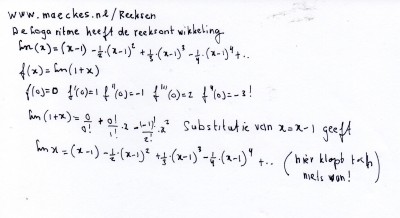 www.maeckes.nl/Reeksen
De logaritme heeft de reeksontwikkeling
ln(x)=(x-1)-½·(x-1)²+⅓·(x-1)³-¼·(x-1)⁴+..
f(x)=ln(1+x)
f(0)=0 f'(0)=1 f''(0)=-1 f'''(0)=2 f⁴(0)=-3!
ln(1+x)=0/0!+0!/1!·x-1!/2!·x² Substitutie van x=x-1 geeft
ln x=(x-1)-½·(x-1)²+⅓(x-1)³-¼(x-1)⁴+.. (hier klopt toch niets van!)